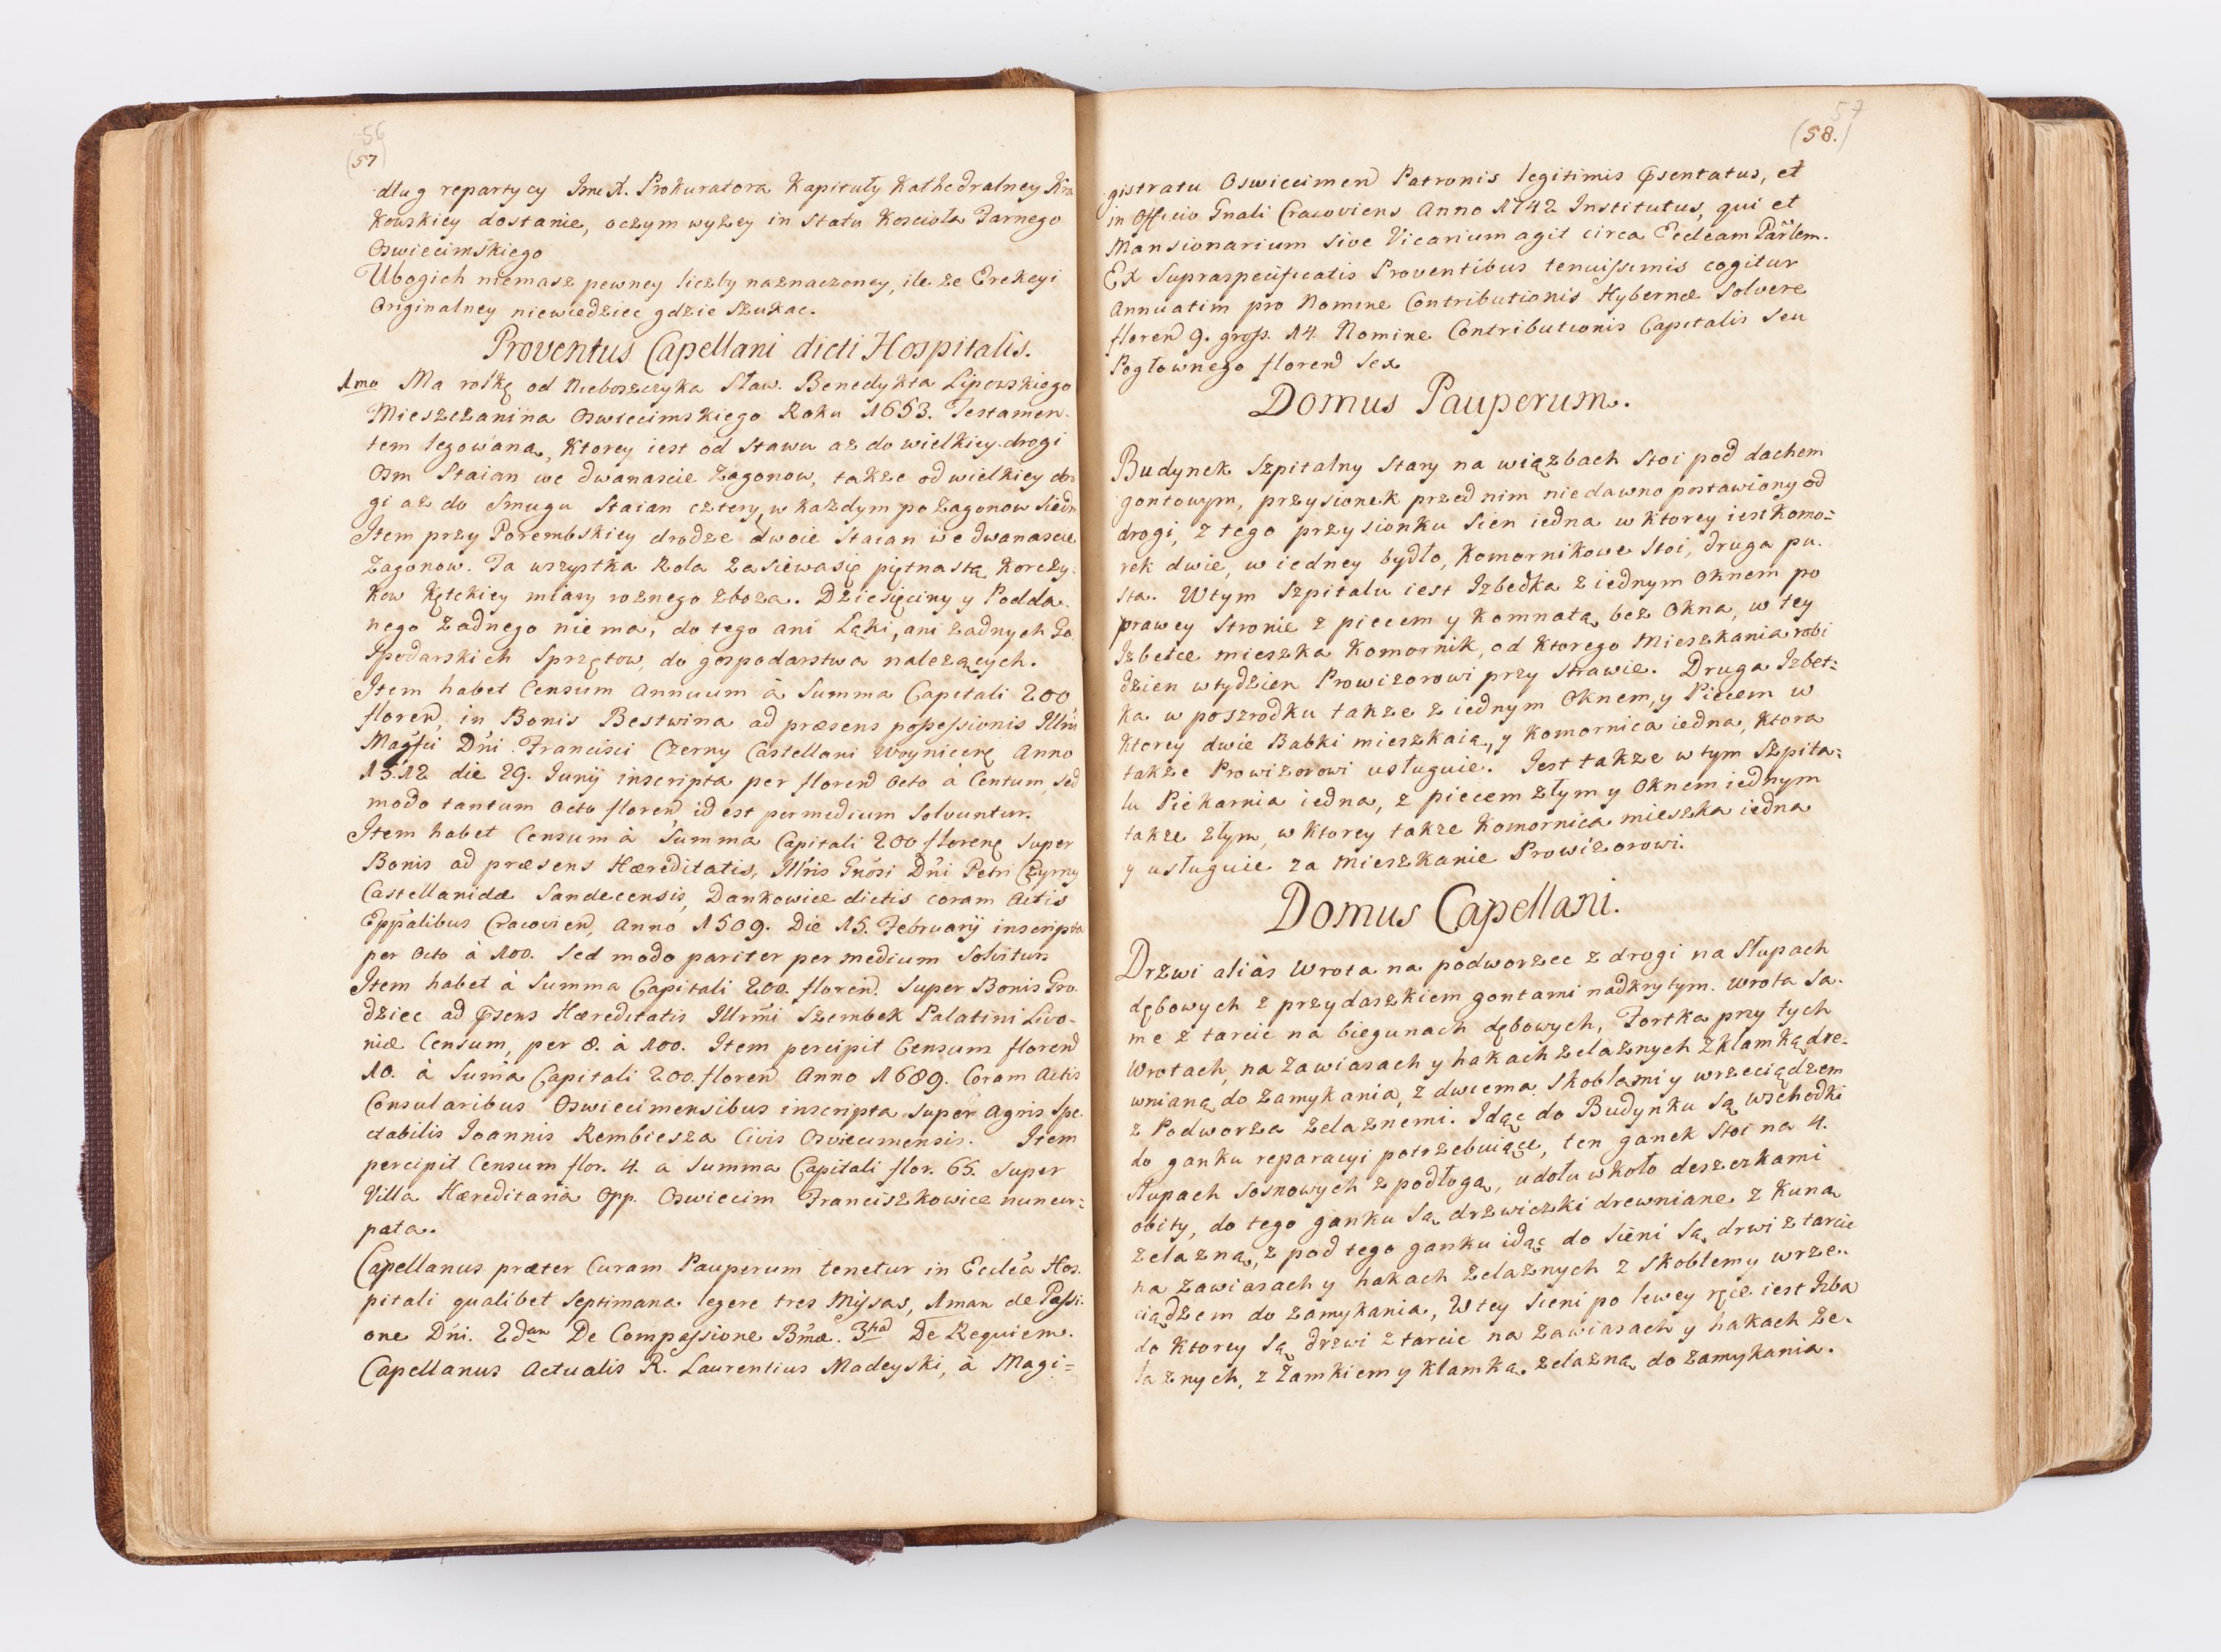 56
(57)
dług repartycy Jmć X. Prokuratora Kapituły Kathedralney Kra
Kowskiey dostanie, oczym wyzey in Statu Kosciola Farnego
Oswiecimskiego
Ubogich niemasz pewney liczby naznaczoney, ile ze Erekcyi
Originalney niewiedziec gdzie Szukac.
Proventus Capellani dicti Hospitalis.
1mo Ma rolkę od Nieboszczyka Sław. Benedykta Lipowskiego
Mieszczanina Oswiecimskiego Roku 1653. Testamen-
tem legowaną, Ktorey iest od Stawu az do wielkiey drogi
Osm Staian we dwanascie Zagonow, takze od wielkiey dro
gi az do Smugu Staian cztery, w Kazdym po Zagonow Siedm
Item przy Porembskiey drodze dwoie Staian we dwanascie
Zagonow. Ta wszystka Rola Zasiewasię piętnastą Korczy-
Kow Kętckiey miary roznego zboza. Dziesięciny y Podda-
nego Zadnego niema, do tego ani Łąki, ani zadnych Go
spodarskich Sprzętow, do gospodarstwa nalezących.
Item habet Censum Annuum à Summa Capitali 200
floren, in Bonis Bestwina ad præsens possessionis Illris
Magfci Dni Francisci Czerny Castellani Woynicen Anno
1512 die 29. Junij inscripta per floren Octo à Centum, sed
modo tantum Octo floren, id est per medium Solvuntur.
Item habet Censum à Summa Capitali 200 floren Super
Bonis ad præsens Hæreditatis, Illris Gnosi Dni Petri Czyrny
Castellanidæ Sandecensis, Dankowice dictis coram Actis
Eppalibus Cracovien, Anno 1509. Die 15. February inscripta
per Octo à 100. Sed modo pariter per medium Solvitur.
Item habet à Summa Capitali 200. floren. Super Bonis Gro-
dziec ad psens Hæreditatis Illrmi Szembek Palatini Livo-
niæ Censum, per 8. à 100. Item percipit Censum floren
10. à Suma Capitali 200. floren Anno 1689. Coram Actis
Consularibus Oswiecimensibus inscripta super Agris Spe-
ctabilis Joannis Rembiesza Civis Osviecimensis. Item
percipit Censum flor. 4. a Summa Capitali flor. 65. Super
Villa Hæreditaria Opp. Oswiecim Franciszkowice nuncu-
pata.
Capellanus præter Curam Pauperum tenetur in Eccleâ Hos-
pitali qualibet Septimana legere tres Missas, 1mam de Passi-
one Dni. 2dam De Compassione Bmæ. 3tiã De Requiem.
Capellanus Actualis R. Laurentius Madeyski, à Magi=
57
(58.)
gistratu Oswiecimen Patronis legitimis psentatus, et
in Officio Gnali Cracoviens Anno 1742 Institutus, qui et
Mansionarium sive Vicarium agit circa Eccleam Parlem.
Ex Supraspecificatis Proventibus tenuissimis cogitur
Annuatim pro Nomine Contributionis Hybernæ Solvere
floren 9. gross. 14. Nomine Contributionis Capitalis seu
Pogłownego floren Sex
Domus Pauperum.
Budynek Szpitalny Stary na wiązbach Stoi pod dachem
gontowym, przysionek przed nim niedawno postawiony od
drogi, z tego przysionku Sien iedna w Ktorey iest Komo=
rek dwie, w iedney bydło, Komornikowe Stoi, druga pu-
sta. Wtym Szpitalu iest Izbedka z iednym Oknem po
prawey Stronie z piecem y Komnatą bez Okna, w tey
Izbetce mieszka Komornik, od Ktorego Mieszkania robi
dzien wtydzien Prowizorowi przy Strawie. Druga Izbet=
ka w poszrodku takze z iednym Oknem, y Piecem w
Ktorey dwie Babki mieszkaią, y Komornica iedna, Ktora
takze Prowizorowi usługuie. Jest takze w tym Szpita=
lu Piekarnia iedna, z piecem złym y Oknem iednym
takze złym, w Ktorey takze Komornica mieszka iedna
y usługuie za Mieszkanie Prowizorowi.
Domus Capellani.
Drzwi aliàs Wrota na podworzec z drogi na Słupach
dębowych z przydaszkiem gontami nadkrytym. Wrota Sa-
me z tarcic na biegunach dębowych, Fortka przy tych
Wrotach, na Zawiasach y hakach zelaznych z klamką dre-
wnianą do Zamykania, z dwiema Skoblami y wrzeciądzem
z Podworza zelaznemi. Idąc do Budynku Są wschodki
do ganku reparacyi potrzebuiące, ten ganek Stoi na 4.
Słupach Sosnowych z podłogą, udołu wkoło deszczkami
obity, do tego ganku Są drzwiczki drewniane z Kuną
zelazną, z pod tego ganku idąc do Sieni Są drwi z tarcic
na Zawiasach y hakach zelaznych z Skoblem y wrze-
ciądzem do zamykania, W tey Sieni po lewey ręce iest Izba
do Ktorey Są drzwi z tarcic na Zawiasach y hakach ze-
laznych, z Zamkiem y klamką zelazną do zamykania.